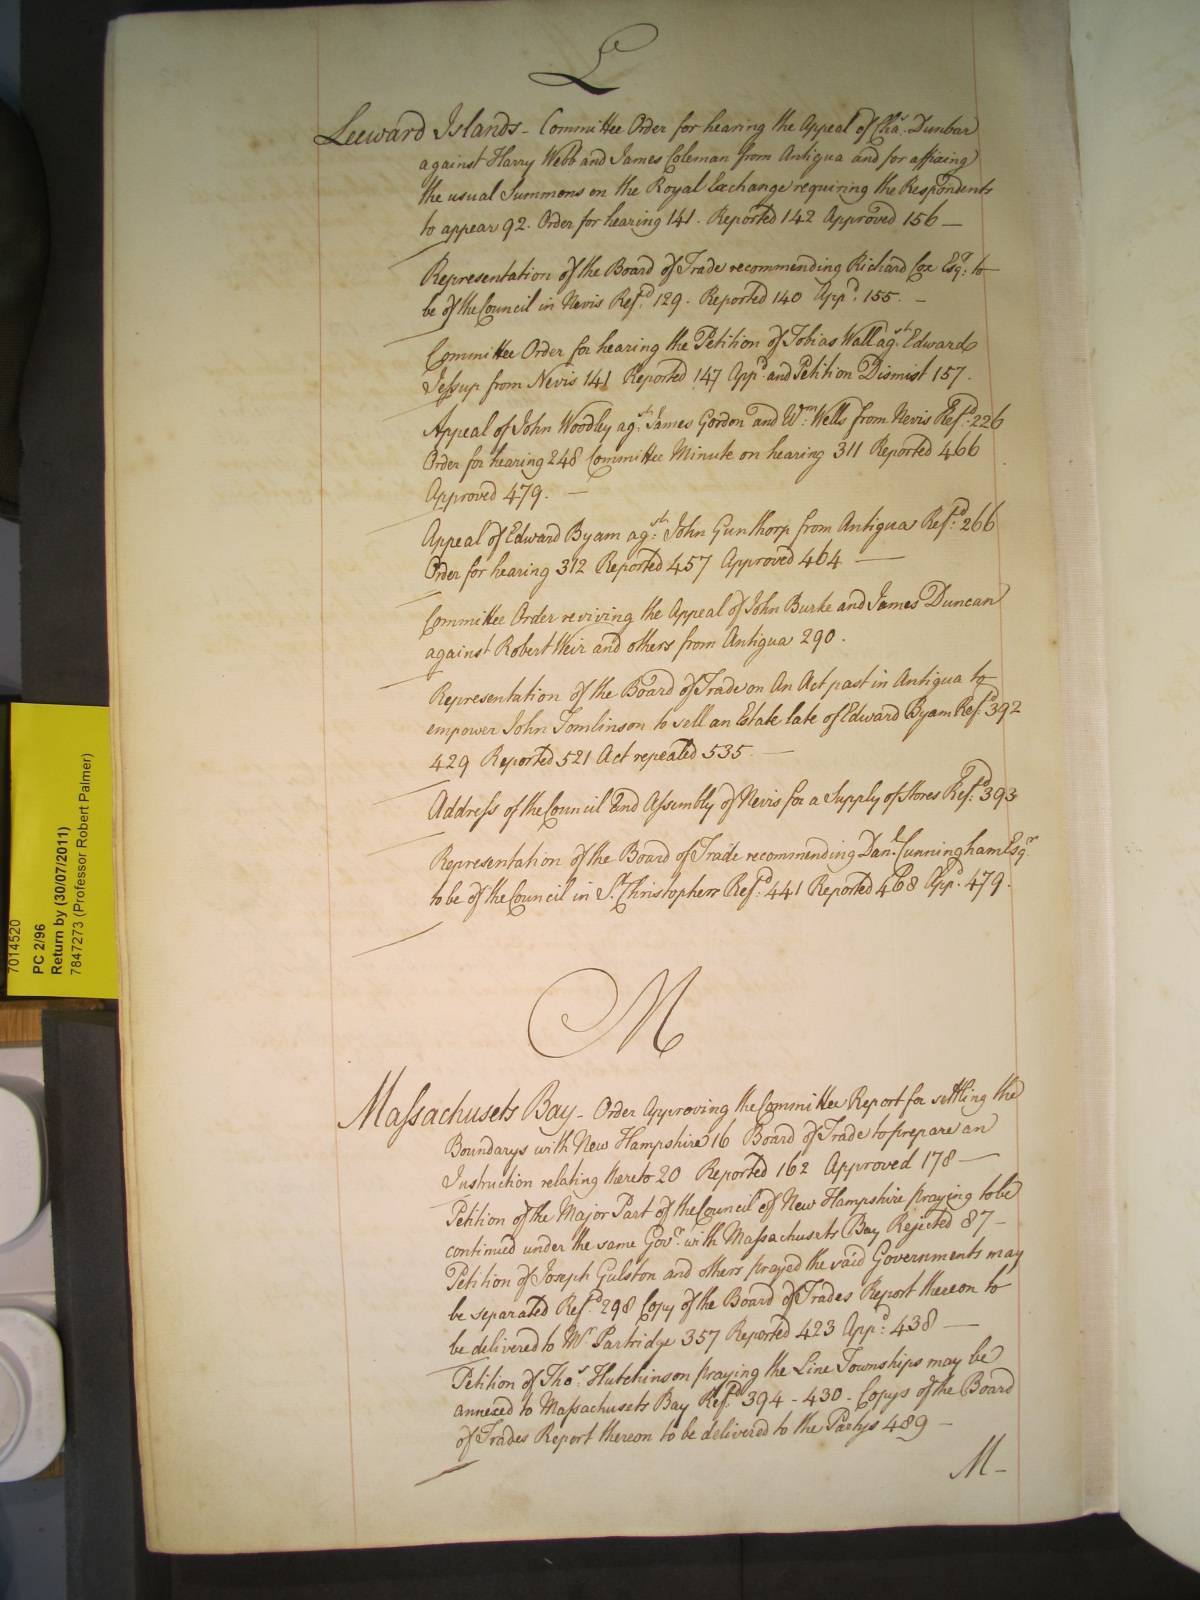 L
Leeward Islands - Committee Order for hearing the Appeal of Cha.s Dunbar
against Harry Webb and James Coleman from Antigua and for affixing
the usual Summons on the Royal Exchange requiring the Respondents
to appear 92. Order for hearing 141. Reported 142 Approved 156 —
Representation of the Board of Trade recommending Richard Cox Esq.r to
be of the Council in Nevis Ref.d 129. Reported 140 App.d 155. -
Committee Order for hearing the Petition of Tobias Wall ag.st Edward
Jessup from Nevis 141 Reported 147 App.d and Petition Dismist 157.
Appeal of John Woodley ag.st James Gordon and W.m Wells from Nevis Ref.d 226
Order for hearing 248 Committee Minute on hearing 311 Reported 466
Approved 479. —
Appeal of Edward Byam ag.st John Gunthorp from Antigua Ref.d 266
Order for hearing 312 Reported 457 Approved 464 —
Committee Order reviving the Appeal of John Burke and James Duncan
against Robert Weir and others from Antigua 290.
Representation of the Board of Trade on An Act past in Antigua to
empower John Tomlinson to sell an Estate late of Edward Byam Ref.d 392
429 Reported 521 Act repealed 535. —
Address of the Council and Assembly of Nevis for a Supply of Stores Ref.d 393
Representation of the Board of Trade recommending Dan.l Cunningham Esq.r
to be of the Council in S.t Christophers Ref.d 441 Reported 468 App.d 479.
M
Massachusets Bay - Order Approving the Committee Report for settling the
Boundarys with New Hampshire 16 Board of Trade to prepare an
Instruction relating thereto 20 Reported 162 Approved 178 —
Petition of the Major Part of the Council of New Hampshire praying to be
continued under the same Gov.r with Massachusets Bay Rejected 87 -
Petition of Joseph Gulston and others prayed the said Governments may
be separated Ref.d 298 Copy of the Board of Trades Report thereon to
be delivered to M.r Partridge 357 Reported 423 App.d 438 —
Petition of Tho.s Hutchinson praying the Line Townships may be
annexed to Massachusets Bay Ref.d 394 - 430 - Copys of the Board
of Trades Report thereon to be delivered to the Partys 489 -
M -
7014520
PC 2/96
Return by (30/07/2011)
7847273 (Professor Robert Palmer)